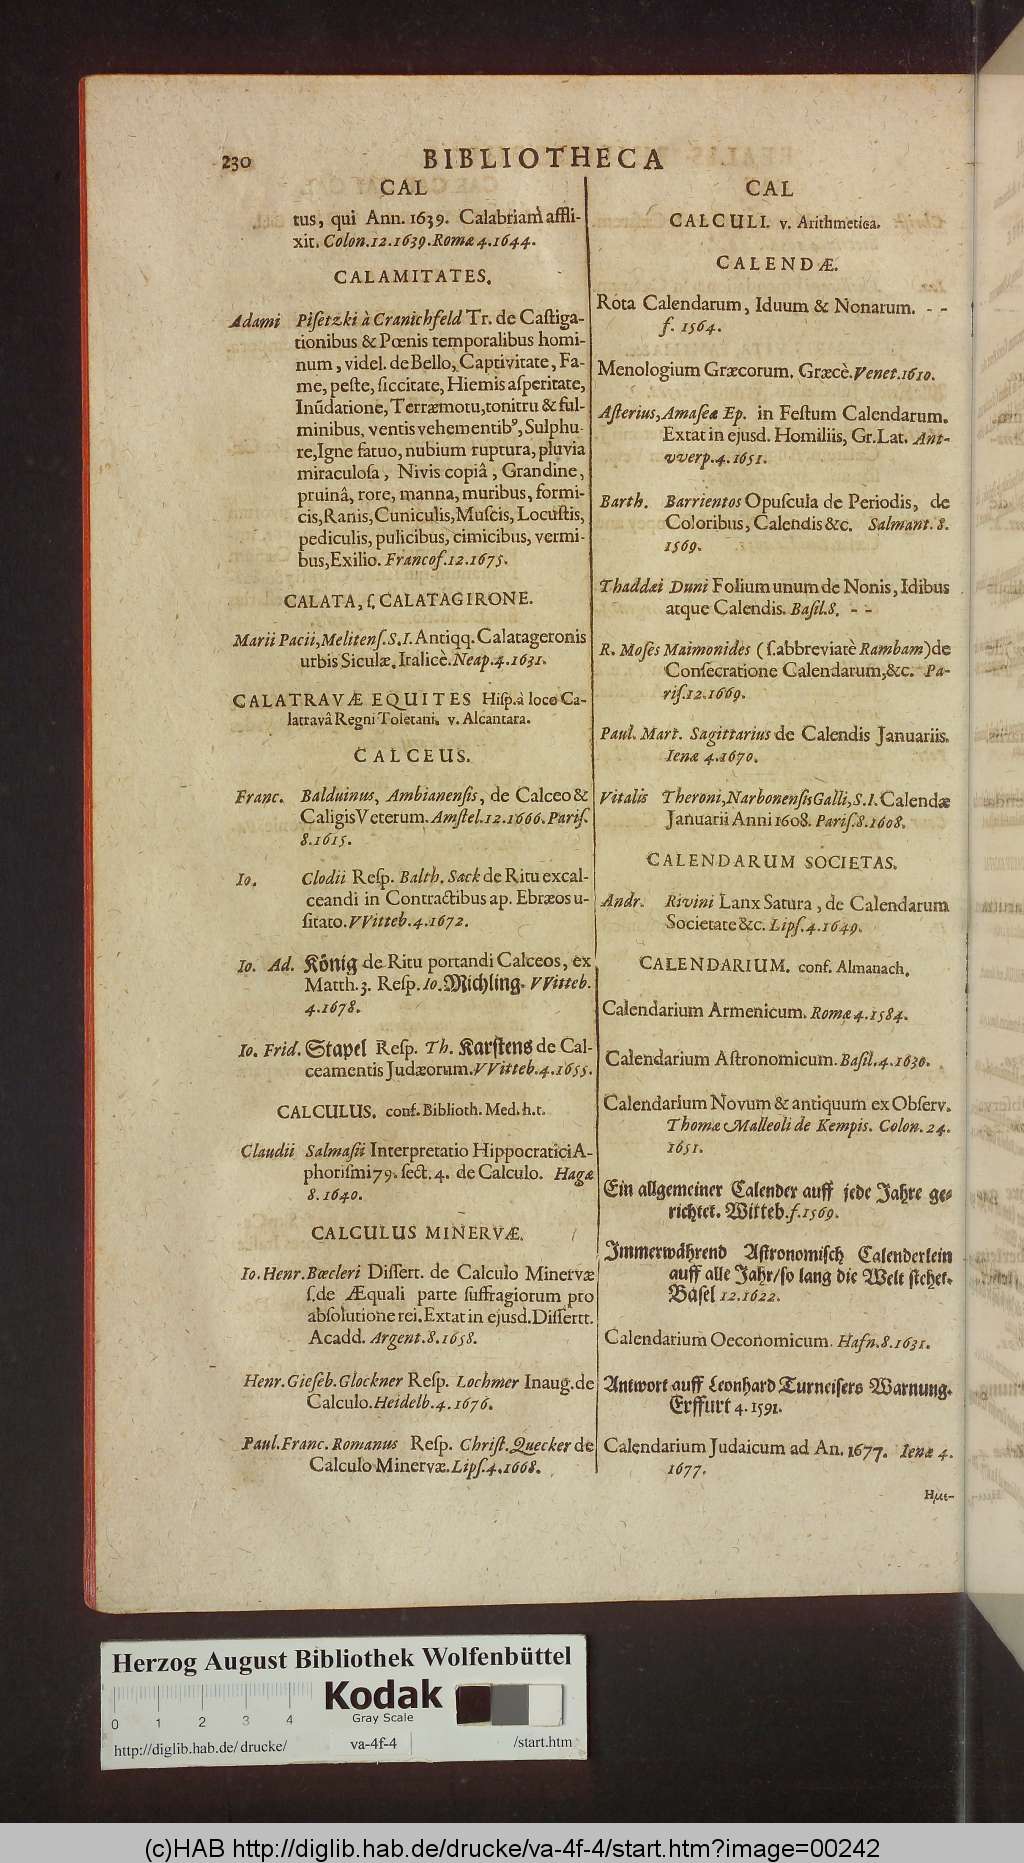 230
BIBLIOTHECA
CAL
tus, qui Ann. 1639. Calabriam affli-
xit. Colon. 12. 1639. Romæ 4. 1644.
CALAMITATES.
Adami Piſetzki à Cranichfeld Tr. de Caſtiga-
tionibus & Pœnis temporalibus homi-
num, videl. de Bello, Captivitate, Fa-
me, peſte, ſiccitate, Hiemis aſperitate,
Inũdatione, Terræmotu, tonitru & ful-
minibus, ventis vehementibꝰ, Sulphu-
re, Igne fatuo, nubium ruptura, pluvia
miraculoſa, Nivis copiâ, Grandine,
pruinâ, rore, manna, muribus, formi-
cis, Ranis, Cuniculis, Muſcis, Locuſtis,
pediculis, pulicibus, cimicibus, vermi-
bus, Exilio. Francof. 12. 1675.
CALATA, ſ. CALATAGIRONE.
Marii Pacii, Melitenſ. S. I. Antiqq. Calatageronis
urbis Siculæ. Italicè. Neap. 4. 1631.
CALATRAVÆ EQUITES Hiſp. à loco Ca-
latravâ Regni Toletani. v. Alcantara.
CALCEUS.
Franc. Balduinus, Ambianenſis, de Calceo &
Caligis Veterum. Amſtel. 12. 1666. Pariſ.
8. 1615.
Io. Clodii Reſp. Balth. Sack de Ritu excal-
ceandi in Contractibus ap. Ebræos u-
ſitato. VVitteb. 4. 1672.
Io. Ad. König de Ritu portandi Calceos, ex
Matth. 3. Reſp. Io. Michling. VVitteb.
4. 1678.
Io. Frid. Stapel Reſp. Th. Karſtens de Cal-
ceamentis Judæorum. VVitteb. 4. 1655.
CALCULUS. conf. Biblioth. Med. h. t.
Claudii Salmaſii Interpretatio Hippocratici A-
phoriſmi 79. ſect. 4. de Calculo. Hagæ
8. 1640.
CALCULUS MINERVÆ.
Io. Henr. Bœcleri Diſſert. de Calculo Minervæ
ſ. de Æquali parte ſuffragiorum pro
abſolutione rei. Extat in ejusd. Diſſertt.
Acadd. Argent. 8. 1658.
Henr. Gieſeb. Glockner Reſp. Lochmer Inaug. de
Calculo. Heidelb. 4. 1676.
Paul. Franc. Romanus Reſp. Chriſt. Quecker de
Calculo Minervæ. Lipſ. 4. 1668.
CAL
CALCULI. v. Arithmetica.
CALENDÆ.
Rota Calendarum, Iduum & Nonarum. - -
f. 1564.
Menologium Græcorum. Græcè. Venet. 1610.
Aſterius, Amaſeæ Ep. in Feſtum Calendarum.
Extat in ejusd. Homiliis, Gr. Lat. Ant-
vverp. 4. 1651.
Barth. Barrientos Opuſcula de Periodis, de
Coloribus, Calendis &c. Salmant. 8.
1569.
Thaddæi Duni Folium unum de Nonis, Idibus
atque Calendis. Baſil. 8. - -
R. Moſes Maimonides (ſ. abbreviatè Rambam) de
Conſecratione Calendarum, &c. Pa-
riſ. 12. 1669.
Paul. Mart. Sagittarius de Calendis Januariis.
Ienæ 4. 1670.
Vitalis Theroni, Narbonenſis Galli, S. I. Calendæ
Januarii Anni 1608. Pariſ. 8. 1608.
CALENDARUM SOCIETAS.
Andr. Rivini Lanx Satura, de Calendarum
Societate &c. Lipſ. 4. 1649.
CALENDARIUM. conf. Almanach.
Calendarium Armenicum. Romæ 4. 1584.
Calendarium Aſtronomicum. Baſil. 4. 1630.
Calendarium Novum & antiquum ex Obſerv.
Thomæ Malleoli de Kempis. Colon. 24.
1651.
Ein allgemeiner Calender auff jede Jahre ge-
richtet. Witteb. f. 1569.
Immerwährend Aſtronomiſch Calenderlein
auff alle Jahr/ ſo lang die Welt ſtehet.
Baſel 12. 1622.
Calendarium Oeconomicum. Hafn. 8. 1631.
Antwort auff Leonhard Turneiſers Warnung.
Erffurt 4. 1591.
Calendarium Judaicum ad An. 1677. Ienæ 4.
1677.
Herzog August Bibliothek Wolfenbüttel
0 1 2 3 4
Kodak
Gray Scale
http://diglib.hab.de/drucke/ va-4f-4 /start.htm
(c)HAB http://diglib.hab.de/drucke/va-4f-4/start.htm?image=00242